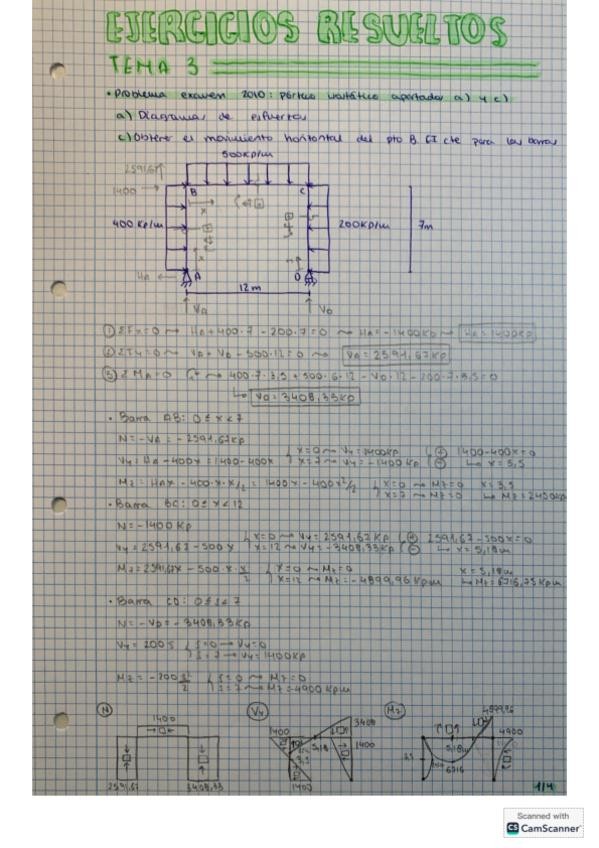 EJERCICIOS RESUELTOS
TEMA 3
• Problema examen 2010: pórtico isostático apartados a) y c)
a) Diagramas de esfuerzos
c) Obtener el movimiento horizontal del pto B. EI cte para las barras
500kp/m
2591,67
1400
B
C
400 kp/m
200kp/m
7m
HA
A
D
12m
VA
VD
① ΣFx=0 HA+400·7-200·7=0 HA=-1400kp HA=1400kp
② ΣFy=0 VA+VD-500·12=0 VA=2591,67kp
③ ΣMA=0 400·7·3,5+500·6·12-VD·12-200·7·3,5=0
VD=3408,33kp
• Barra AB: 0≤x<7
N=-VA=-2591,67kp
Vy=HA-400x=1400-400x x=0 Vy=1400kp 1400-400x=0
x=7 Vy=-1400kp x=3,5
Mz=HAx-400·x·x/2=1400x-400x²/2 x=0 Mz=0 x=3,5
x=7 Mz=0 Mz=2450kp
• Barra BC: 0≤x<12
N=-1400kp
Vy=2591,67-500x x=0 Vy=2591,67kp 2591,67-500x=0
x=12 Vy=-3408,33kp x=5,18m
Mz=2591,67x-500·x·x/2 x=0 Mz=0 x=5,18m
x=12 Mz=-4899,96kpm Mz=6716,75kpm
• Barra CD: 0≤s<7
N=-VD=-3408,33kp
Vy=200s s=0 Vy=0
s=7 Vy=1400kp
Mz=-200s²/2 s=0 Mz=0
s=7 Mz=-4900kpm
N
1400
2591,67
3408,33
Vy
1400
3408
5,18
1400
3,5
1400
Mz
4900
5,18m
6716
1/4
Scanned with
CS CamScanner